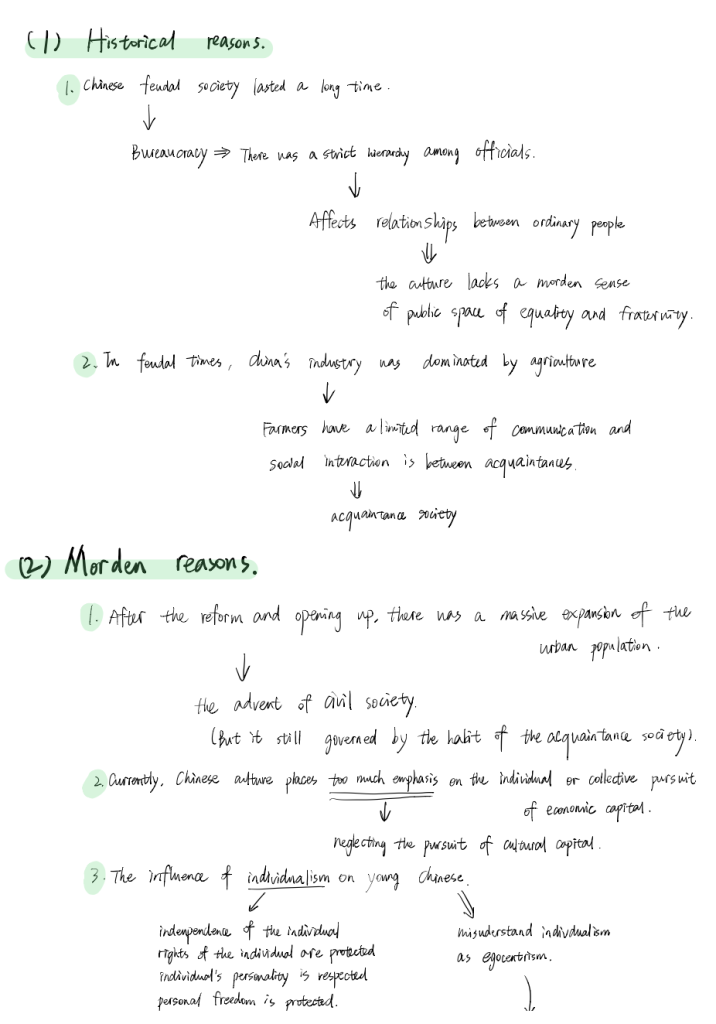 (1) Historical reasons.
1. Chinese feudal society lasted a long time.
↓
Bureaucracy ⇒ There was a strict hierarchy among officials.
↓
Affects relationships between ordinary people
⇓
the culture lacks a morden sense
of public space of equality and fraternity.
2. In feudal times, china's industry was dominated by agriculture
↓
Farmers have a limited range of communication and
social interaction is between acquaintances.
⇓
acquaintance society
(2) Morden reasons.
1. After the reform and opening up, there was a massive expansion of the
urban population.
↓
the advent of civil society.
(But it still governed by the habit of the acquaintance society).
2. Currently, Chinese culture places too much emphasis on the individual or collective pursuit
of economic capital.
↓
neglecting the pursuit of cultural capital.
3. The influence of individualism on young Chinese.
indenpendence of the individual
rights of the individual are protected
individual's personality is respected
personal freedom is protected.
misunderstand indivdualism
as egocentrism.